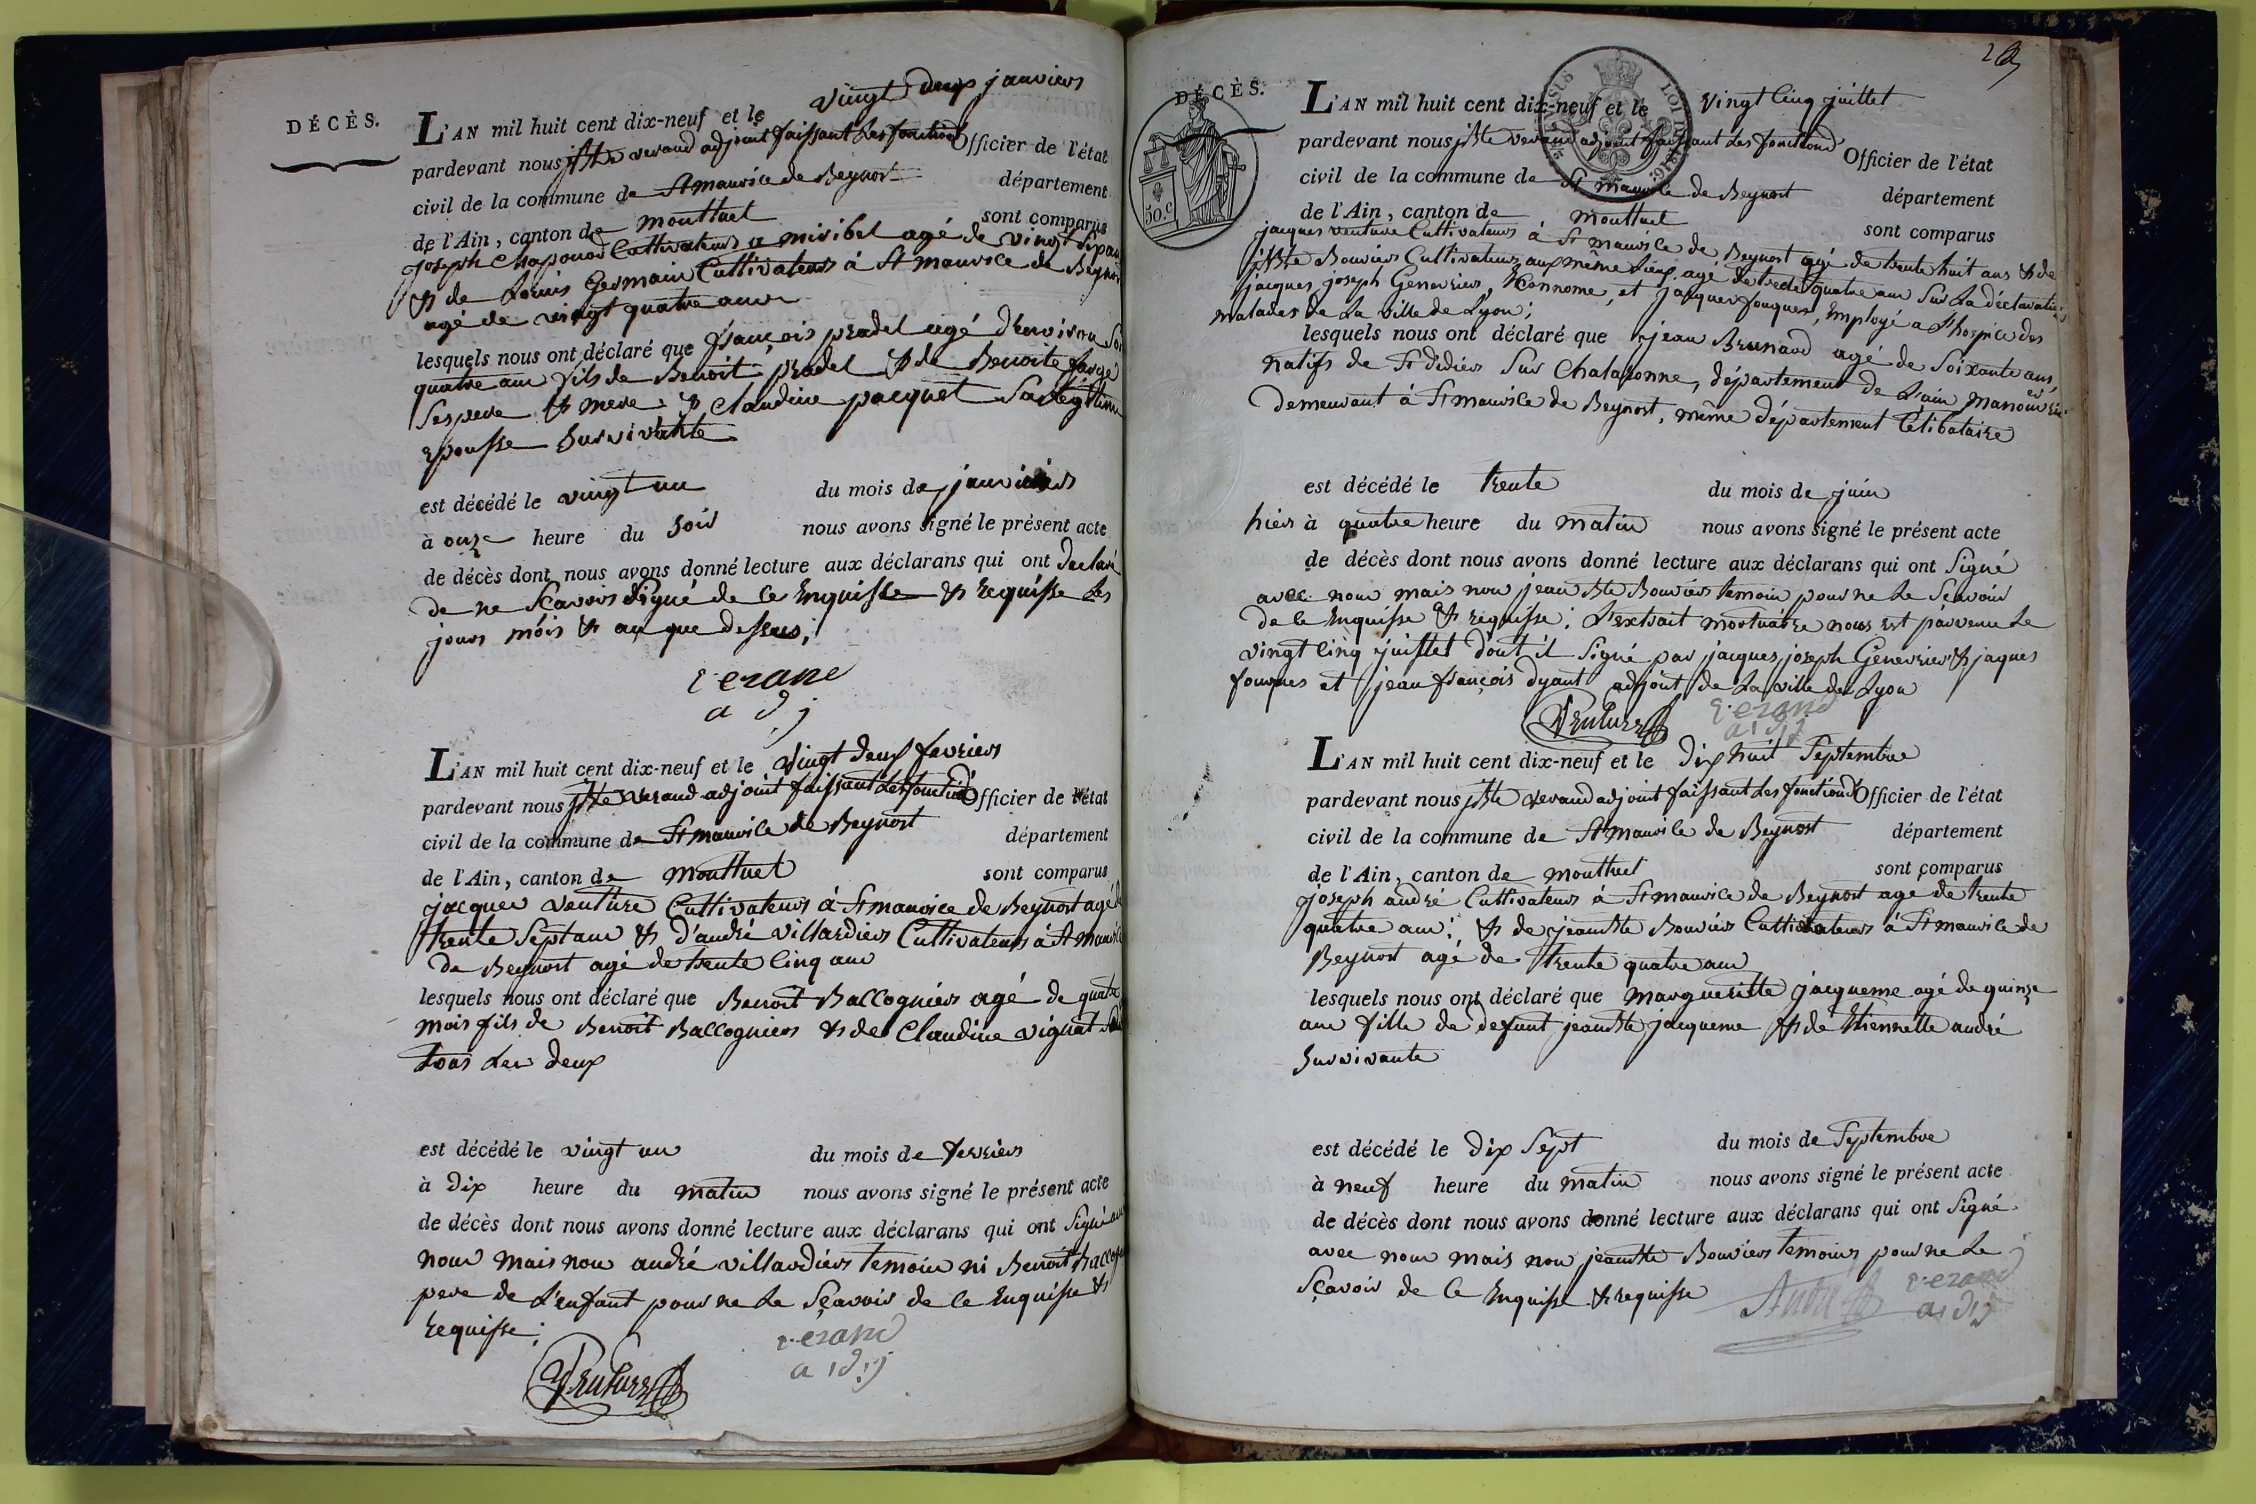 DÉCÈS.
L'AN mil huit cent dix-neuf et le vingt deux janviers
pardevant nous jBte verand adjoint faissant les fonctions Officier de l'état
civil de la commune de St maurice de Beynost département
de l'Ain, canton de montluel sont comparus
joseph Chaponod Cultivateurs a miribel agé de vingt
& de Louis Germain Cultivateurs à St maurice de Beynost
agé de vingt quatre ans
lesquels nous ont déclaré que françois pradel agé d'environ
quatre ans fils de Benoit pradel & de Benoite farge
ses pere & mere & claudine paquet Sa légitime
epousse survivante
est décédé le vingt un du mois de janviers
à onze heure du soir nous avons signé le présent acte
de décès dont nous avons donné lecture aux déclarans qui ont declaré
de ne sçavoir signé de ce Enquisse & requisse les
jours mois & an que dessus;
verand
adj
L'AN mil huit cent dix-neuf et le vingt deux fevriers
pardevant nous jBte verand adjoint faissant les fonctions Officier de l'état
civil de la commune de St maurice de Beynost département
de l'Ain, canton de montluel sont comparus
jacques venture Cultivateurs à St maurice de Beynost agé de
trente sept ans & d'andré villardiers Cultivateurs à St maurice
de Beynost agé de trente cinq ans
lesquels nous ont déclaré que Benoit Baccogniers agé de quatre
mois fils de Benoit Baccogniers & de Claudine vignat
tous les deux
est décédé le vingt un du mois de fevriers
à dix heure du matin nous avons signé le présent acte
de décès dont nous avons donné lecture aux déclarans qui ont signé avec
nous mais non andré villardiers temoin ni Benoit
pere de l'enfant pour ne le sçavoir de ce Enquisse &
requisse;
Venture verand
adj
DÉCÈS.
50.c
L'AN mil huit cent dix-neuf et le vingt cinq juillet
pardevant nous jBte verand adjoint faissant les fonctions Officier de l'état
civil de la commune de St maurice de Beynost département
de l'Ain, canton de montluel sont comparus
jacques venture Cultivateurs à St maurice de Beynost agé de trente huit ans & de
jBte Bouviers Cultivateurs aux même lieux agé de trente quatre ans sur la déclaration
jacques joseph Genevriers, Econnome, et jacques fouques, Employé a l'hospice des
malades de la ville de Lyon;
lesquels nous ont déclaré que jean Brunard agé de soixante ans,
natifs de St didiers sur Chalaronne, département de l'ain manouvrier
demeurant à St maurice de Beynost, même département Célibataire
est décédé le trente du mois de juin
hiers à quatre heure du matin nous avons signé le présent acte
de décès dont nous avons donné lecture aux déclarans qui ont signé
avec nous mais non jean Bte Bouviers temoin pour ne le sçavoir
de ce Enquisse & requisse; L'extrait mortuaire nous est parvenu le
vingt cinq juillet dont il signé par jacques joseph Genevriers & jaques
fouques et jean françois dyant adjoint de la ville de Lyon
Venture verand
adj
L'AN mil huit cent dix-neuf et le dix huit Septembre
pardevant nous jBte verand adjoint faissant les fonctions Officier de l'état
civil de la commune de St maurice de Beynost département
de l'Ain, canton de montluel sont comparus
joseph andré Cultivateurs à St maurice de Beynost agé de trente
quatre ans; & de jean Bte Bouviers Cultivateurs à St maurice de
Beynost agé de trente quatre ans
lesquels nous ont déclaré que margueritte jacqueme agé de quinze
ans fille de defunt jean Bte jacqueme & de Etiennette andré
survivante
est décédé le dix sept du mois de Septembre
à neuf heure du matin nous avons signé le présent acte
de décès dont nous avons donné lecture aux déclarans qui ont signé
avec nous mais non jean Bte Bouviers temoins pour ne le
sçavoir de ce Enquisse & requisse
André verand
adj